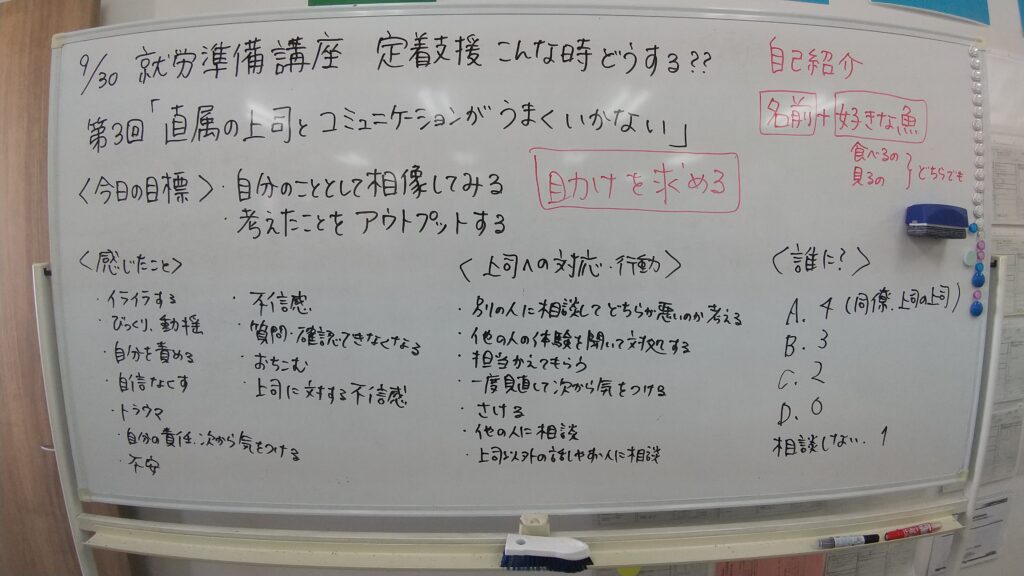 9/30 就労準備講座 定着支援 こんな時どうする??
第3回「直属の上司とコミュニケーションがうまくいかない」
自己紹介
名前+好きな魚
食べるの
見るの
どちらでも
〈今日の目標〉・自分のこととして想像してみる
・考えたことをアウトプットする
助けを求める
〈感じたこと〉
・イライラする
・びっくり、動揺
・自分を責める
・自信なくす
・トラウマ
・自分の責任、次から気をつける
・不安
・不信感
・質問・確認できなくなる
・おちこむ
・上司に対する不信感
〈上司への対応・行動〉
・別の人に相談してどちらが悪いのか考える
・他の人の体験を聞いて対処する
・担当かえてもらう
・一度見直して次から気をつける
・さける
・他の人に相談
・上司以外の話しやすい人に相談
〈誰に?〉
A. 4 (同僚、上司の上司)
B. 3
C. 2
D. 0
相談しない. 1